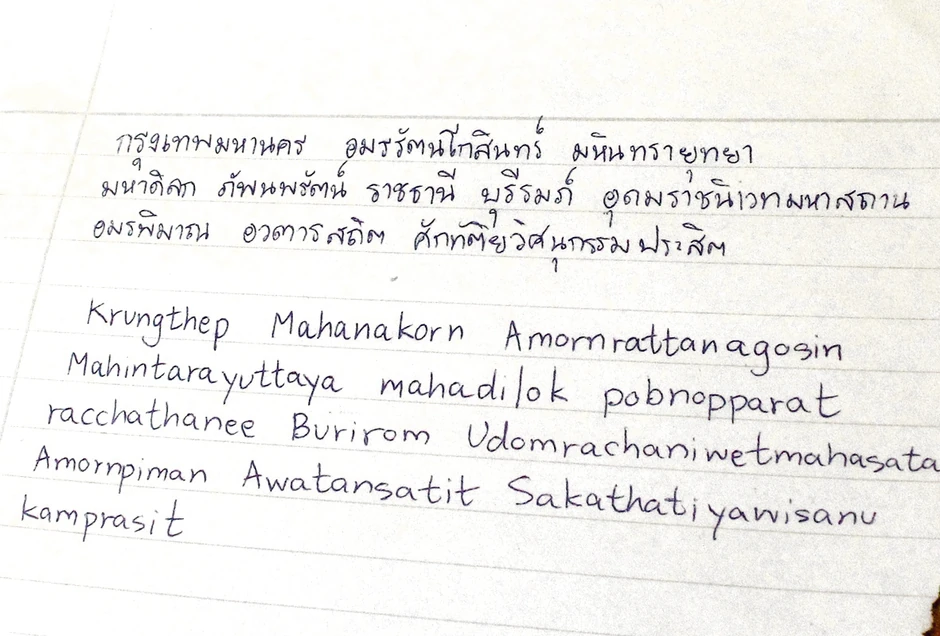 กรุงเทพมหานคร อมรรัตนโกสินทร์ มหินทรายุทยา
มหาดิลก ภัพนพรัตน์ ราชธานี บุรีรมภ์ อุดมราชนิเวทมหาสถาน
อมรพิมาณ อวตารสถิต ศักทัติยวิศนุกรรมประสิต
Krungthep Mahanakorn Amornrattanagosin
Mahintarayuttaya mahadilok pobnopparat
racchathanee Burirom Udomrachaniwetmahasata
Amornpiman Awatansatit Sakathatiyawisanu
kamprasit